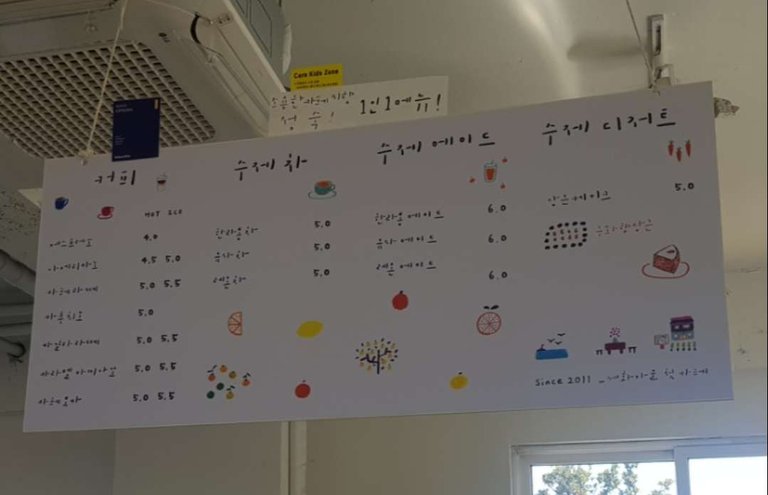 Care Kids Zone
조용한 카페지향
정숙! 1인 1메뉴!
커피
HOT ICE
에스프레소 4.0
아메리카노 4.5 5.0
카페라떼 5.0 5.5
카푸치노 5.0
바닐라라떼 5.0 5.5
카라멜마끼아또 5.0 5.5
카페모카 5.0 5.5
수제 차
한라봉차 5.0
유자차 5.0
레몬차 5.0
수제 에이드
한라봉에이드 6.0
유자에이드 6.0
레몬에이드 6.0
수제 디저트
당근케이크 5.0
구좌향당근
Since 2011 _ 세화마을 첫 카페